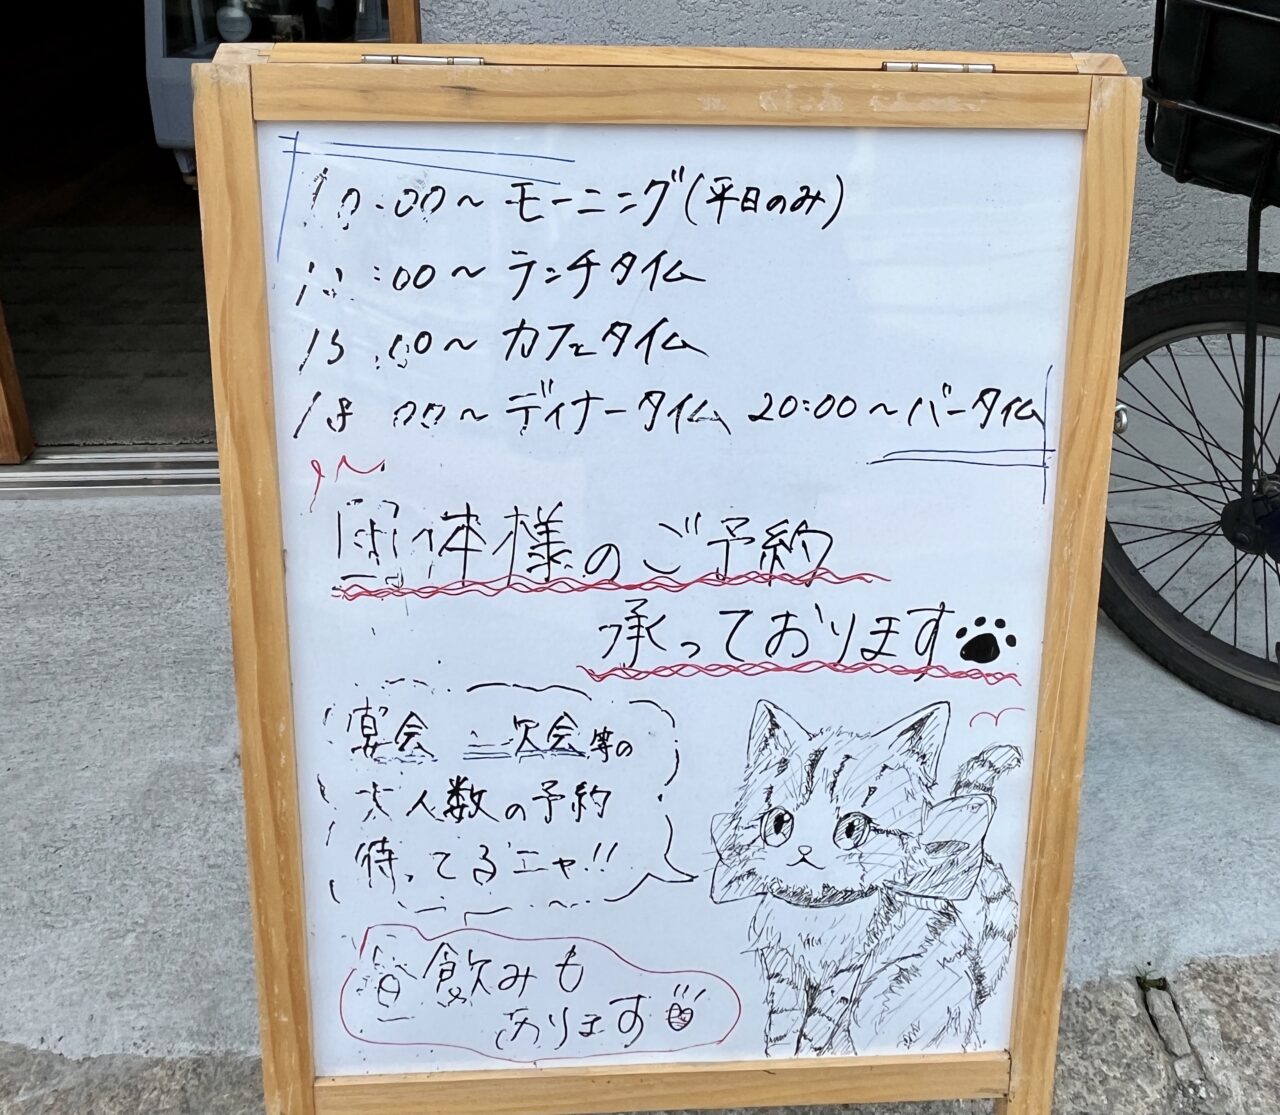 10:00～モーニング(平日のみ)
:00～ランチタイム
15:00～カフェタイム
18:00～ディナータイム 20:00～バータイム
団体様のご予約
承っております
宴会 二次会等の
大人数の予約
待ってるニャ!!
昼飲みも
あります